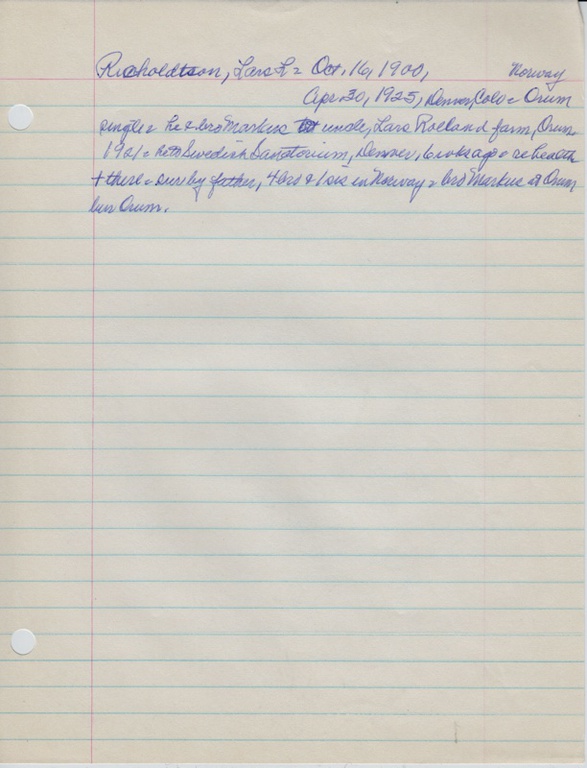 Richoldtson, Lars L = Oct. 16, 1900, Norway
Apr. 30, 1925, Denver, Colo = Orum
single = he & bro Markus to uncle, Lars Roeland farm, Orum
1921 = he to Swedish Sanatorium, Denver, 6 wks ago = re health
+ there = sur by father, 4 bro & 1 sis in Norway = bro Markus at Orum
bur Orum.